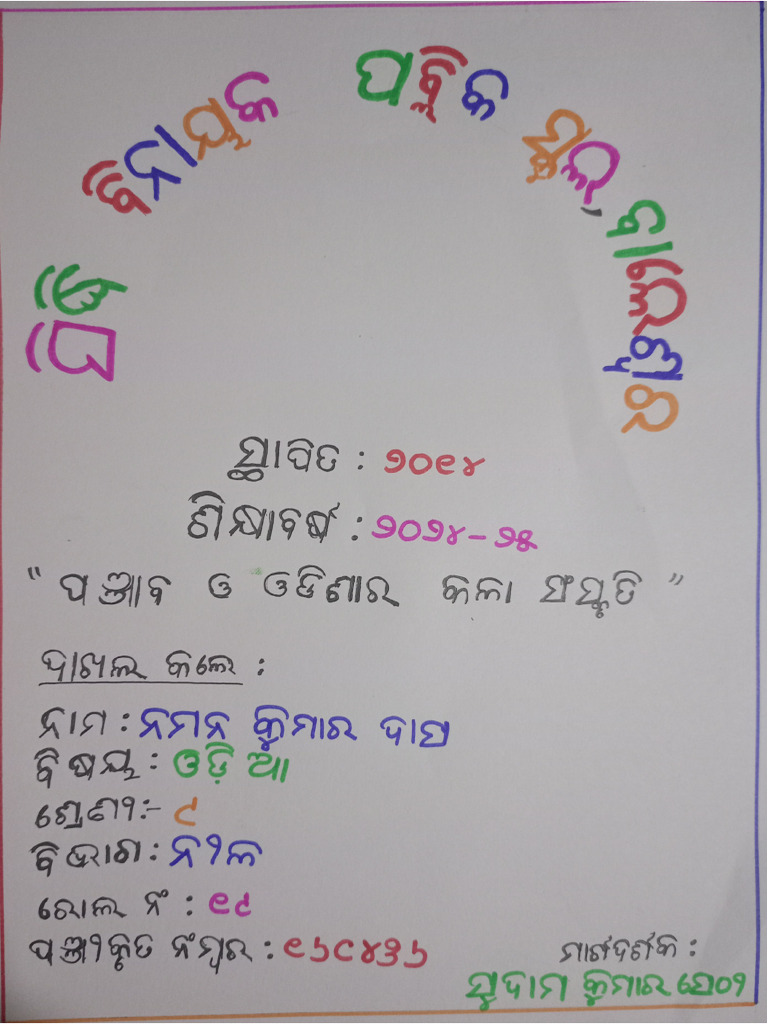 ସିଦ୍ଧି ବିନାୟକ ପବ୍ଲିକ ସ୍କୁଲ୍
ସ୍ଥାପିତ : ୨୦୧୪
ଶିକ୍ଷାବର୍ଷ : ୨୦୨୪-୨୫
"ପଞ୍ଜାବ ଓ ଓଡିଶାର କଳା ସଂସ୍କୃତି"
ଦାଖଲ କଲେ :
ନାମ : ନମନ କୁମାର ଦାସ
ବିଷୟ : ଓଡ଼ିଆ
ଶ୍ରେଣୀ:- ୯
ବିଭାଗ: ନୀଳ
ରୋଲ ନଂ : ୧୯
ପଞ୍ଜୀକୃତ ନଂମ୍ବର : ୧୬୯୪୩୬
ମାର୍ଗଦର୍ଶକ :
ସୁଦାମ କୁମାର ସେଠୀ